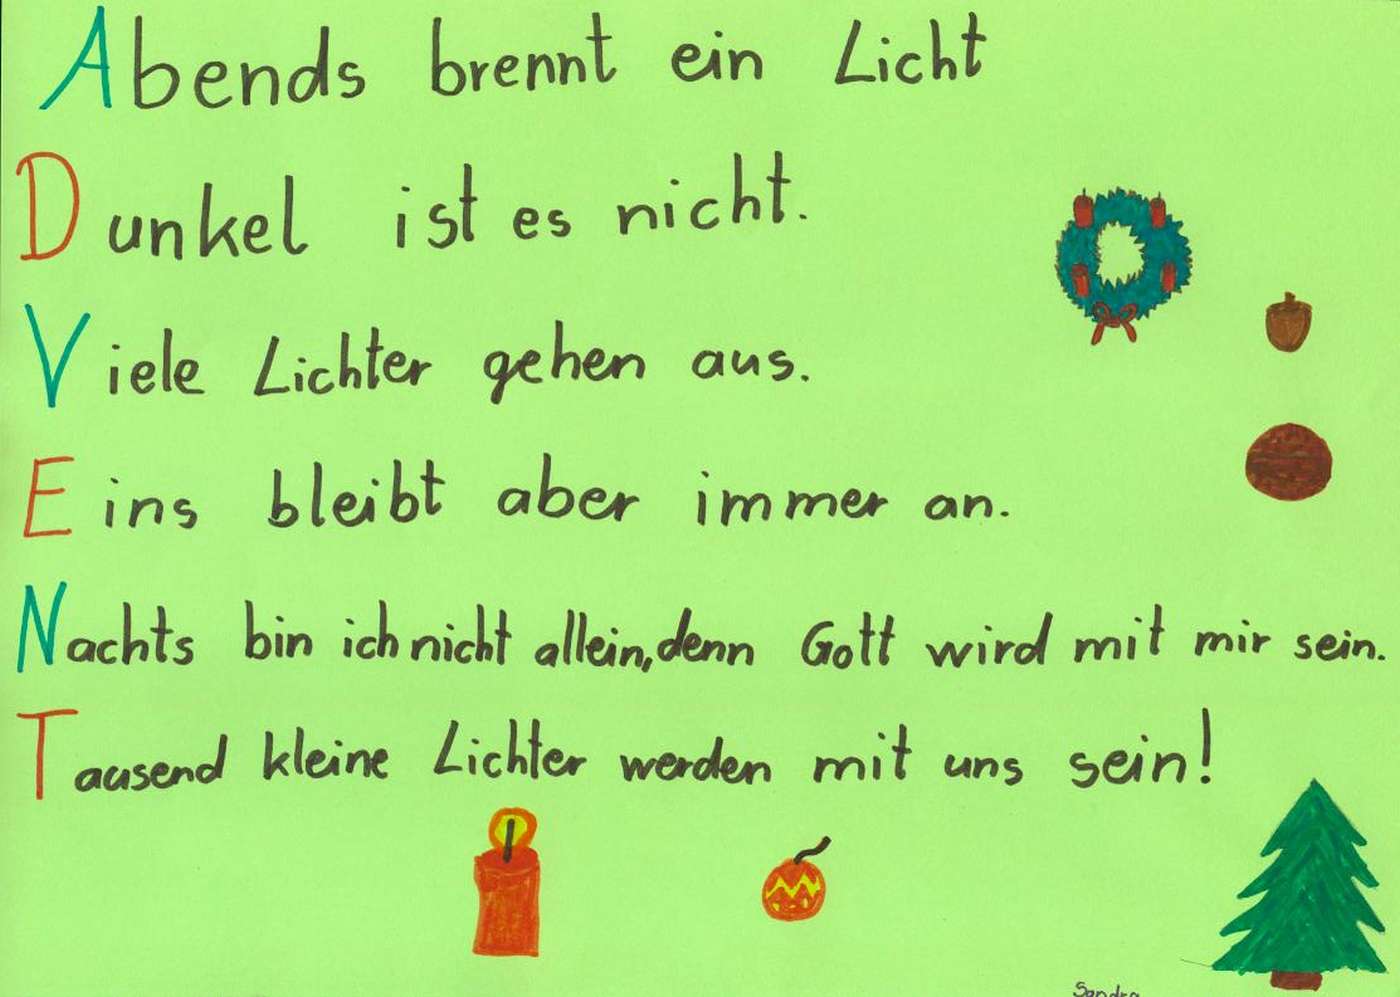 Abends brennt ein Licht
Dunkel ist es nicht.
Viele Lichter gehen aus.
Eins bleibt aber immer an.
Nachts bin ich nicht allein, denn Gott wird mit mir sein.
Tausend kleine Lichter werden mit uns sein!
Sandra